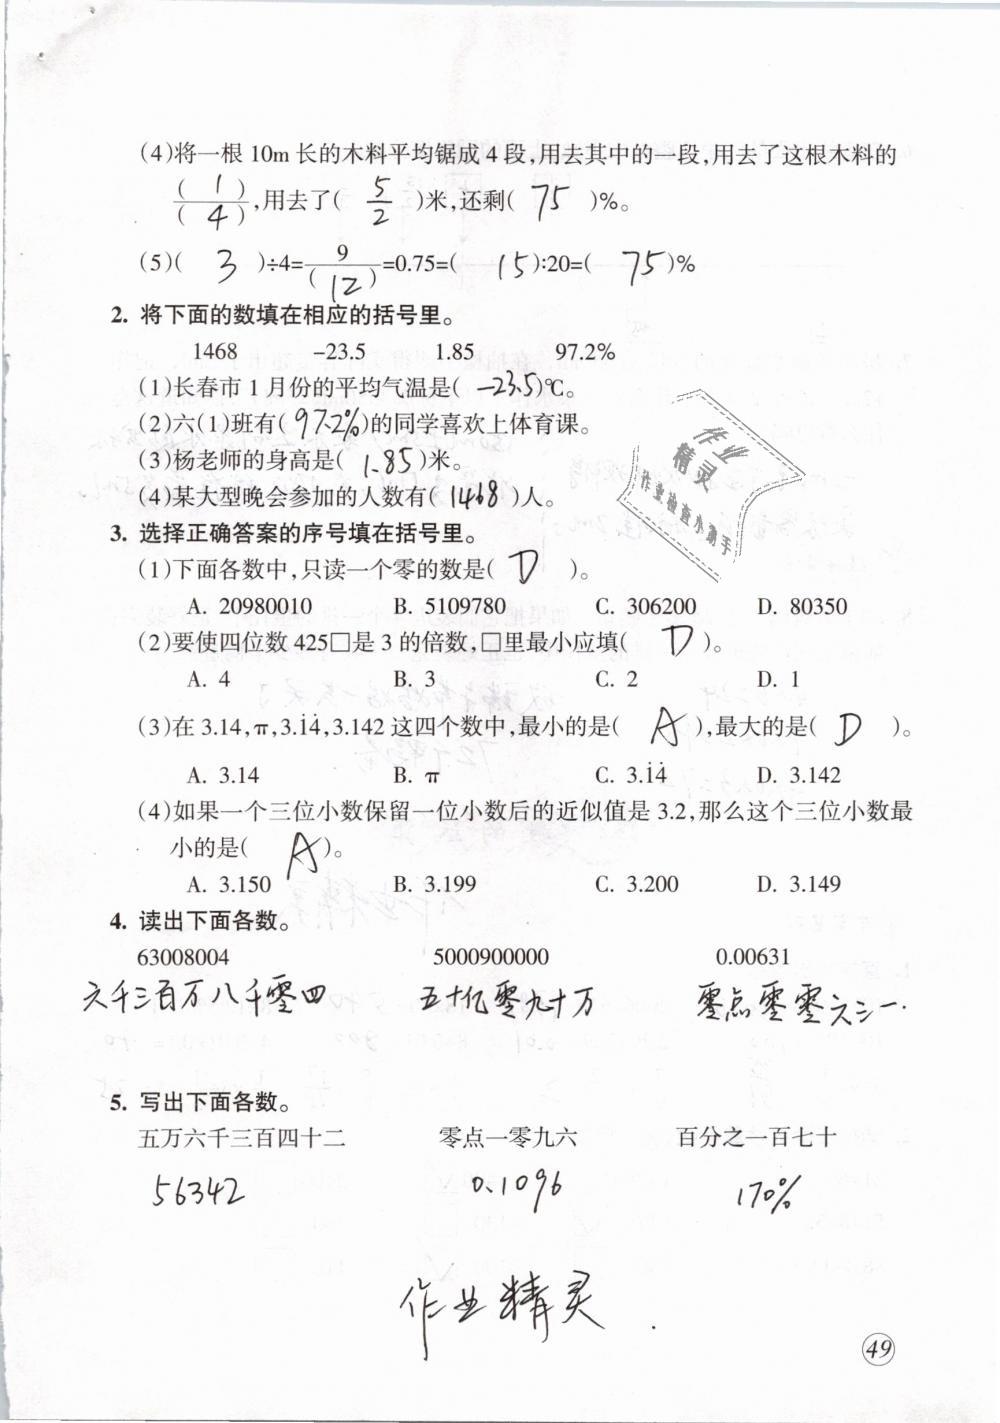 (4)将一根 10m 长的木料平均锯成 4 段,用去其中的一段,用去了这根木料的
( 1 )/( 4 ),用去了( 5/2 )米,还剩( 75 )%。
(5)( 3 )÷4=9/( 12 )=0.75=( 15 ):20=( 75 )%
2. 将下面的数填在相应的括号里。
1468 -23.5 1.85 97.2%
(1)长春市 1 月份的平均气温是( -23.5 )℃。
(2)六(1)班有( 97.2% )的同学喜欢上体育课。
(3)杨老师的身高是( 1.85 )米。
(4)某大型晚会参加的人数有( 1468 )人。
作业
精灵
作业检查小助手
3. 选择正确答案的序号填在括号里。
(1)下面各数中,只读一个零的数是( D )。
A. 20980010 B. 5109780 C. 306200 D. 80350
(2)要使四位数 425□是 3 的倍数,□里最小应填( D )。
A. 4 B. 3 C. 2 D. 1
(3)在 3.14,π,3.1̇4̇,3.142 这四个数中,最小的是( A ),最大的是( D )。
A. 3.14 B. π C. 3.1̇4̇ D. 3.142
(4)如果一个三位小数保留一位小数后的近似值是 3.2,那么这个三位小数最
小的是( A )。
A. 3.150 B. 3.199 C. 3.200 D. 3.149
4. 读出下面各数。
63008004 5000900000 0.00631
六千三百万八千零四 五十亿零九十万 零点零零六三一.
5. 写出下面各数。
五万六千三百四十二 零点一零九六 百分之一百七十
56342 0.1096 170%
作业精灵.
49